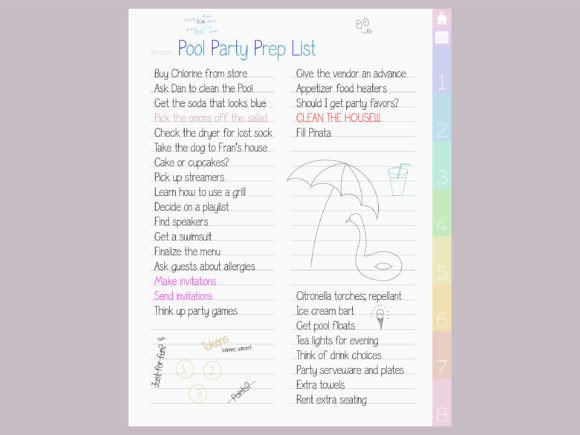 Pool Party Prep List
Buy Chlorine from store
Ask Dan to clean the Pool
Get the soda that looks blue
Pick the onions off the salad
Check the dryer for lost sock
Take the dog to Fran's house
Cake or cupcakes?
Pick up streamers
Learn how to use a grill
Decide on a playlist
Find speakers
Get a swimsuit
Finalize the menu
Ask guests about allergies
Make invitations
Send invitations
Think up party games
Just-for-fun?
Tokens
Winner, winner!
1
2
3
Points?
Give the vendor an advance
Appetizer food heaters
Should I get party favors?
CLEAN THE HOUSE!!!
Fill Pinata
Citronella torches; repellant
Ice cream bar!
Get pool floats
Tea lights for evening
Think of drink choices
Party serveware and plates
Extra towels
Rent extra seating
1
2
3
4
5
6
7
8